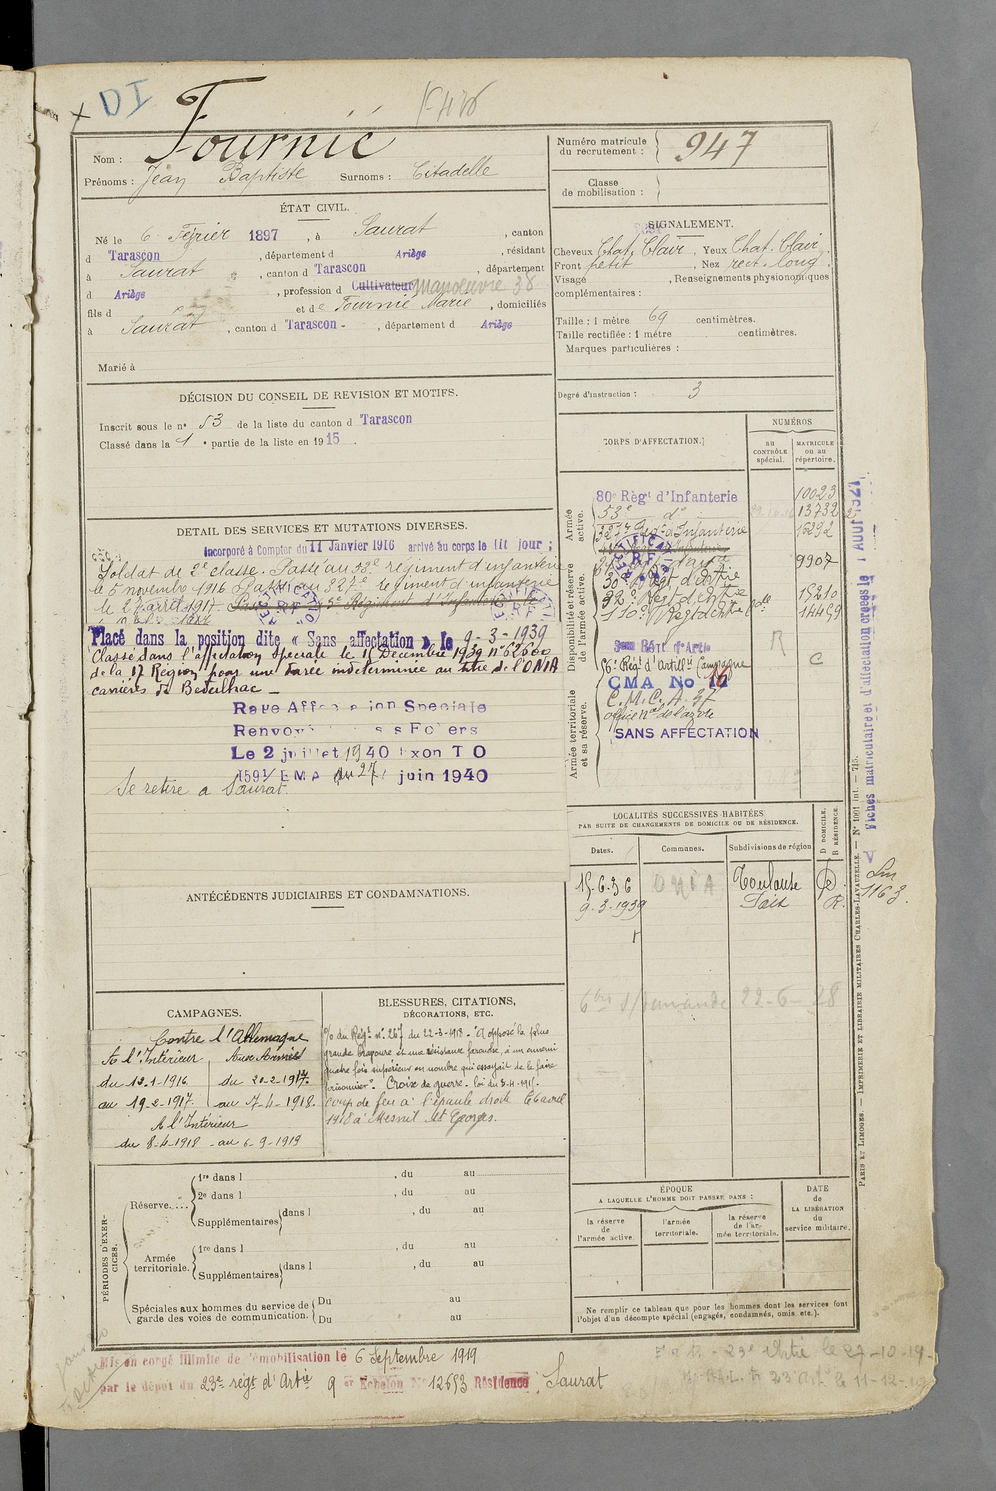 DI
Nom : Fournié
Prénoms : Jean Baptiste Surnoms : Citadelle
Numéro matricule
du recrutement : 947
Classe
de mobilisation :
ÉTAT CIVIL.
Né le 6 Février 1897, à Saurat, canton
d Tarascon, département d Ariège, résidant
à Saurat, canton d Tarascon, département
d Ariège, profession d Cultivateur Manoeuvre 38
fils d et de Fournié Marie, domiciliés
à Saurat, canton d Tarascon -, département d Ariège
Marié à
SIGNALEMENT.
Cheveux Chat. Clair, Yeux Chat. Clair,
Front petit, Nez rect. long,
Visagé , Renseignements physionomiques
complémentaires :
Taille : 1 mètre 69 centimètres.
Taille rectifiée : 1 mètre centimètres.
Marques particulières :
Degré d'instruction : 3
DÉCISION DU CONSEIL DE REVISION ET MOTIFS.
Inscrit sous le n° 53 de la liste du canton d Tarascon
Classé dans la 1 e partie de la liste en 1915.
DETAIL DES SERVICES ET MUTATIONS DIVERSES.
Incorporé à Compter du 11 Janvier 1916 arrivé au corps le dit jour ;
Soldat de 2e classe. Passé au 53e régiment d'infanterie
le 6 novembre 1916 Passé au 327e régiment d'infanterie
le 27 avril 1917.
Placé dans la position dite « Sans affectation » le 9-3-1939
Classé dans l'affectation spéciale le 15 Décembre 1939 n° 62600
de la 17 Région pour une durée indeterminée au titre de l'ONIA
carrières de Bedeilhac -
Raye Affectation Speciale
Renvoyé Foyers
Le 2 juillet 1940 Exon T O
1591/EMA du 27 juin 1940
Se retire a Saurat
CORPS D'AFFECTATION.
NUMÉROS
au CONTRÔLE spécial.
MATRICULE ou au répertoire.
Armée active.
80e Régt d'Infanterie 10023
53e d° 13732
327e Régt d'Infanterie 15292
9907
Disponibilité et réserve de l'armée active.
15210
14459
R
C
Armée territoriale et sa réserve.
56e Régt d'Artillie Campagne
CMA No 17
C.M.C.A. 37
SANS AFFECTATION
LOCALITÉS SUCCESSIVES HABITÉES
PAR SUITE DE CHANGEMENTS DE DOMICILE OU DE RÉSIDENCE.
Dates. Communes. Subdivisions de région D DOMICILE. R RÉSIDENCE.
15-6-36 ONIA Toulouse D.
9-3-1939 Foix R.
22-6-38
Fiches matriculaire et d'affectation créées le 1 AOUT 1927
1163
ANTÉCÉDENTS JUDICIAIRES ET CONDAMNATIONS.
CAMPAGNES.
Contre l'Allemagne
A l'Intérieur Aux Armées
du 12-1-1916 du 20-2-1917.
au 19-2-1917. au 7-4-1918.
A l'Intérieur
du 8-4-1918 au 6-9-1919
BLESSURES, CITATIONS,
DÉCORATIONS, ETC.
O/ du Régt n° 267 du 22-3-1918 - "A opposé la plus
grande bravoure et une résistance farouche, à un ennemi
quatre fois supérieur en nombre qui essayait de le faire
prisonnier". Croix de guerre - loi du 8-4-1915.
Coup de feu à l'épaule droite le 6 avril
1918 à Mesnil St Georges.
PÉRIODES D'EXERCICES.
Réserve....
1re dans l , du au
2e dans l , du au
Supplémentaires dans l , du au
Armée territoriale.
1re dans l , du au
Supplémentaires dans l , du au
Spéciales aux hommes du service de
garde des voies de communication.
Du au
Du au
ÉPOQUE
A LAQUELLE L'HOMME DOIT PASSER DANS :
la réserve de l'armée active.
l'armée territoriale.
la réserve de l'armée territoriale.
DATE de LA LIBÉRATION du service militaire.
Ne remplir ce tableau que pour les hommes dont les services font
l'objet d'un décompte spécial (engagés, condamnés, omis, etc.).
PARIS ET LIMOGES. — IMPRIMERIE ET LIBRAIRIE MILITAIRES CHARLES-LAVAUZELLE. — N° 1001 int. — 715.
Mis en congé illimité de démobilisation le 6 Septembre 1919
par le dépôt du 23e régt d'Artie 9 er Echelon N° 12653 Résidence Saurat